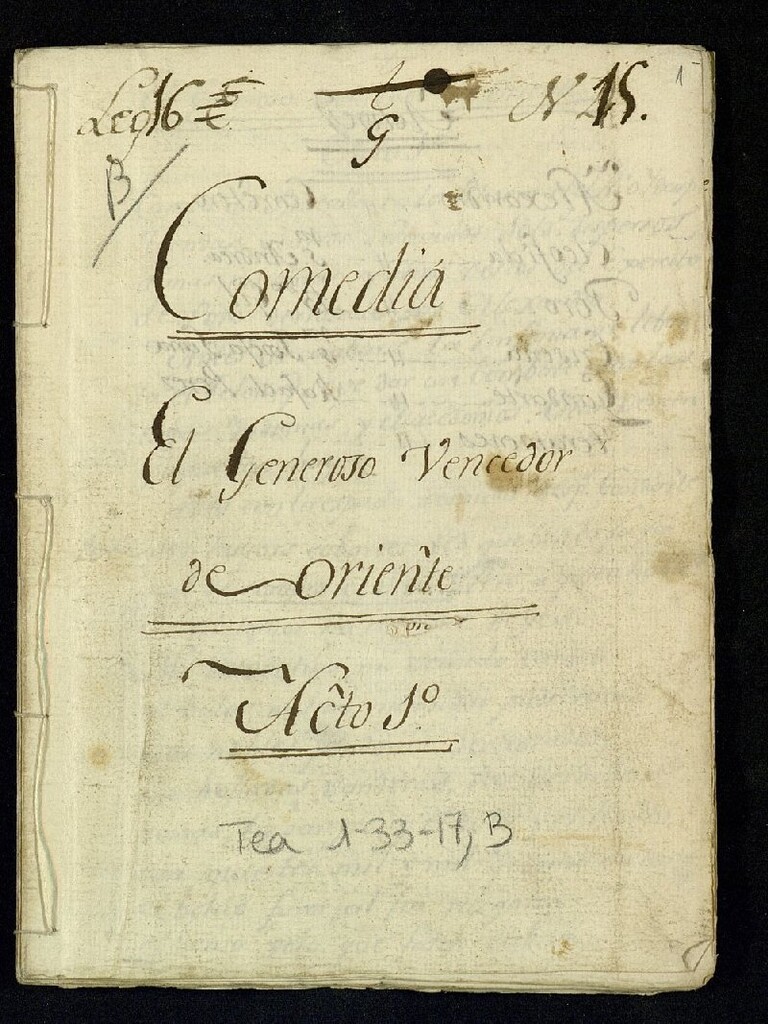 Leg 16
t
N 15.
1
G
B
Comedia
El Generoso Vencedor
de Oriente
Acto 1º
Tea 1-33-17, B